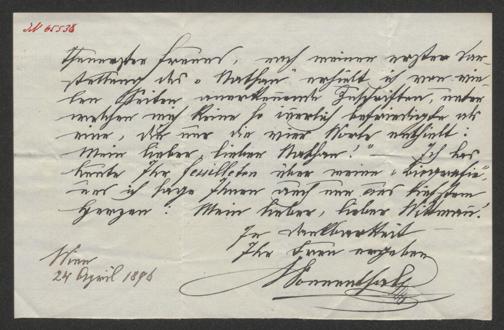 JN 65538
Theuerster Freund, nach meiner ersten Dar-
stellung des "Nathan" erhielt ich von vie-
len Seiten anerkennende Zuschriften, unter
welchen mich keine so innerlich befriedigte als
eine, die nur die vier Worte enthielt:
"Mein lieber, lieber Nathan!" — Ich las
heute Ihr Feuilleton über meine "Biografie"
und ich sage Ihnen auch nur aus tiefstem
Herzen: Mein lieber, lieber Wittmann!
In Dankbarkeit
Ihr treu ergebener
Sonnenthal
Wien
24 April 1896